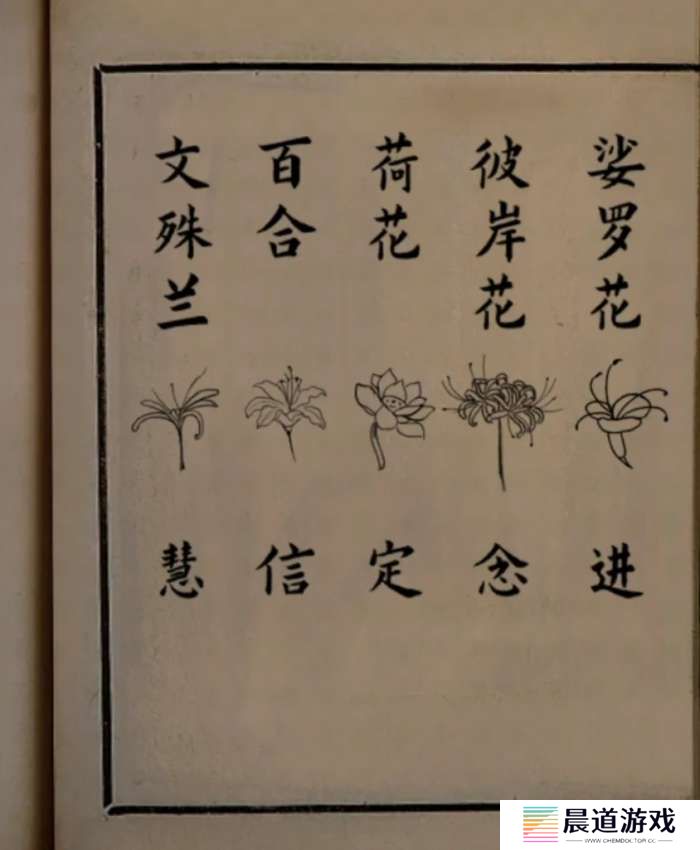 娑罗花
彼岸花
荷花
百合
文殊兰
进
念
定
信
慧
晨道游戏
WWW.CHEMDOCTOR.COM